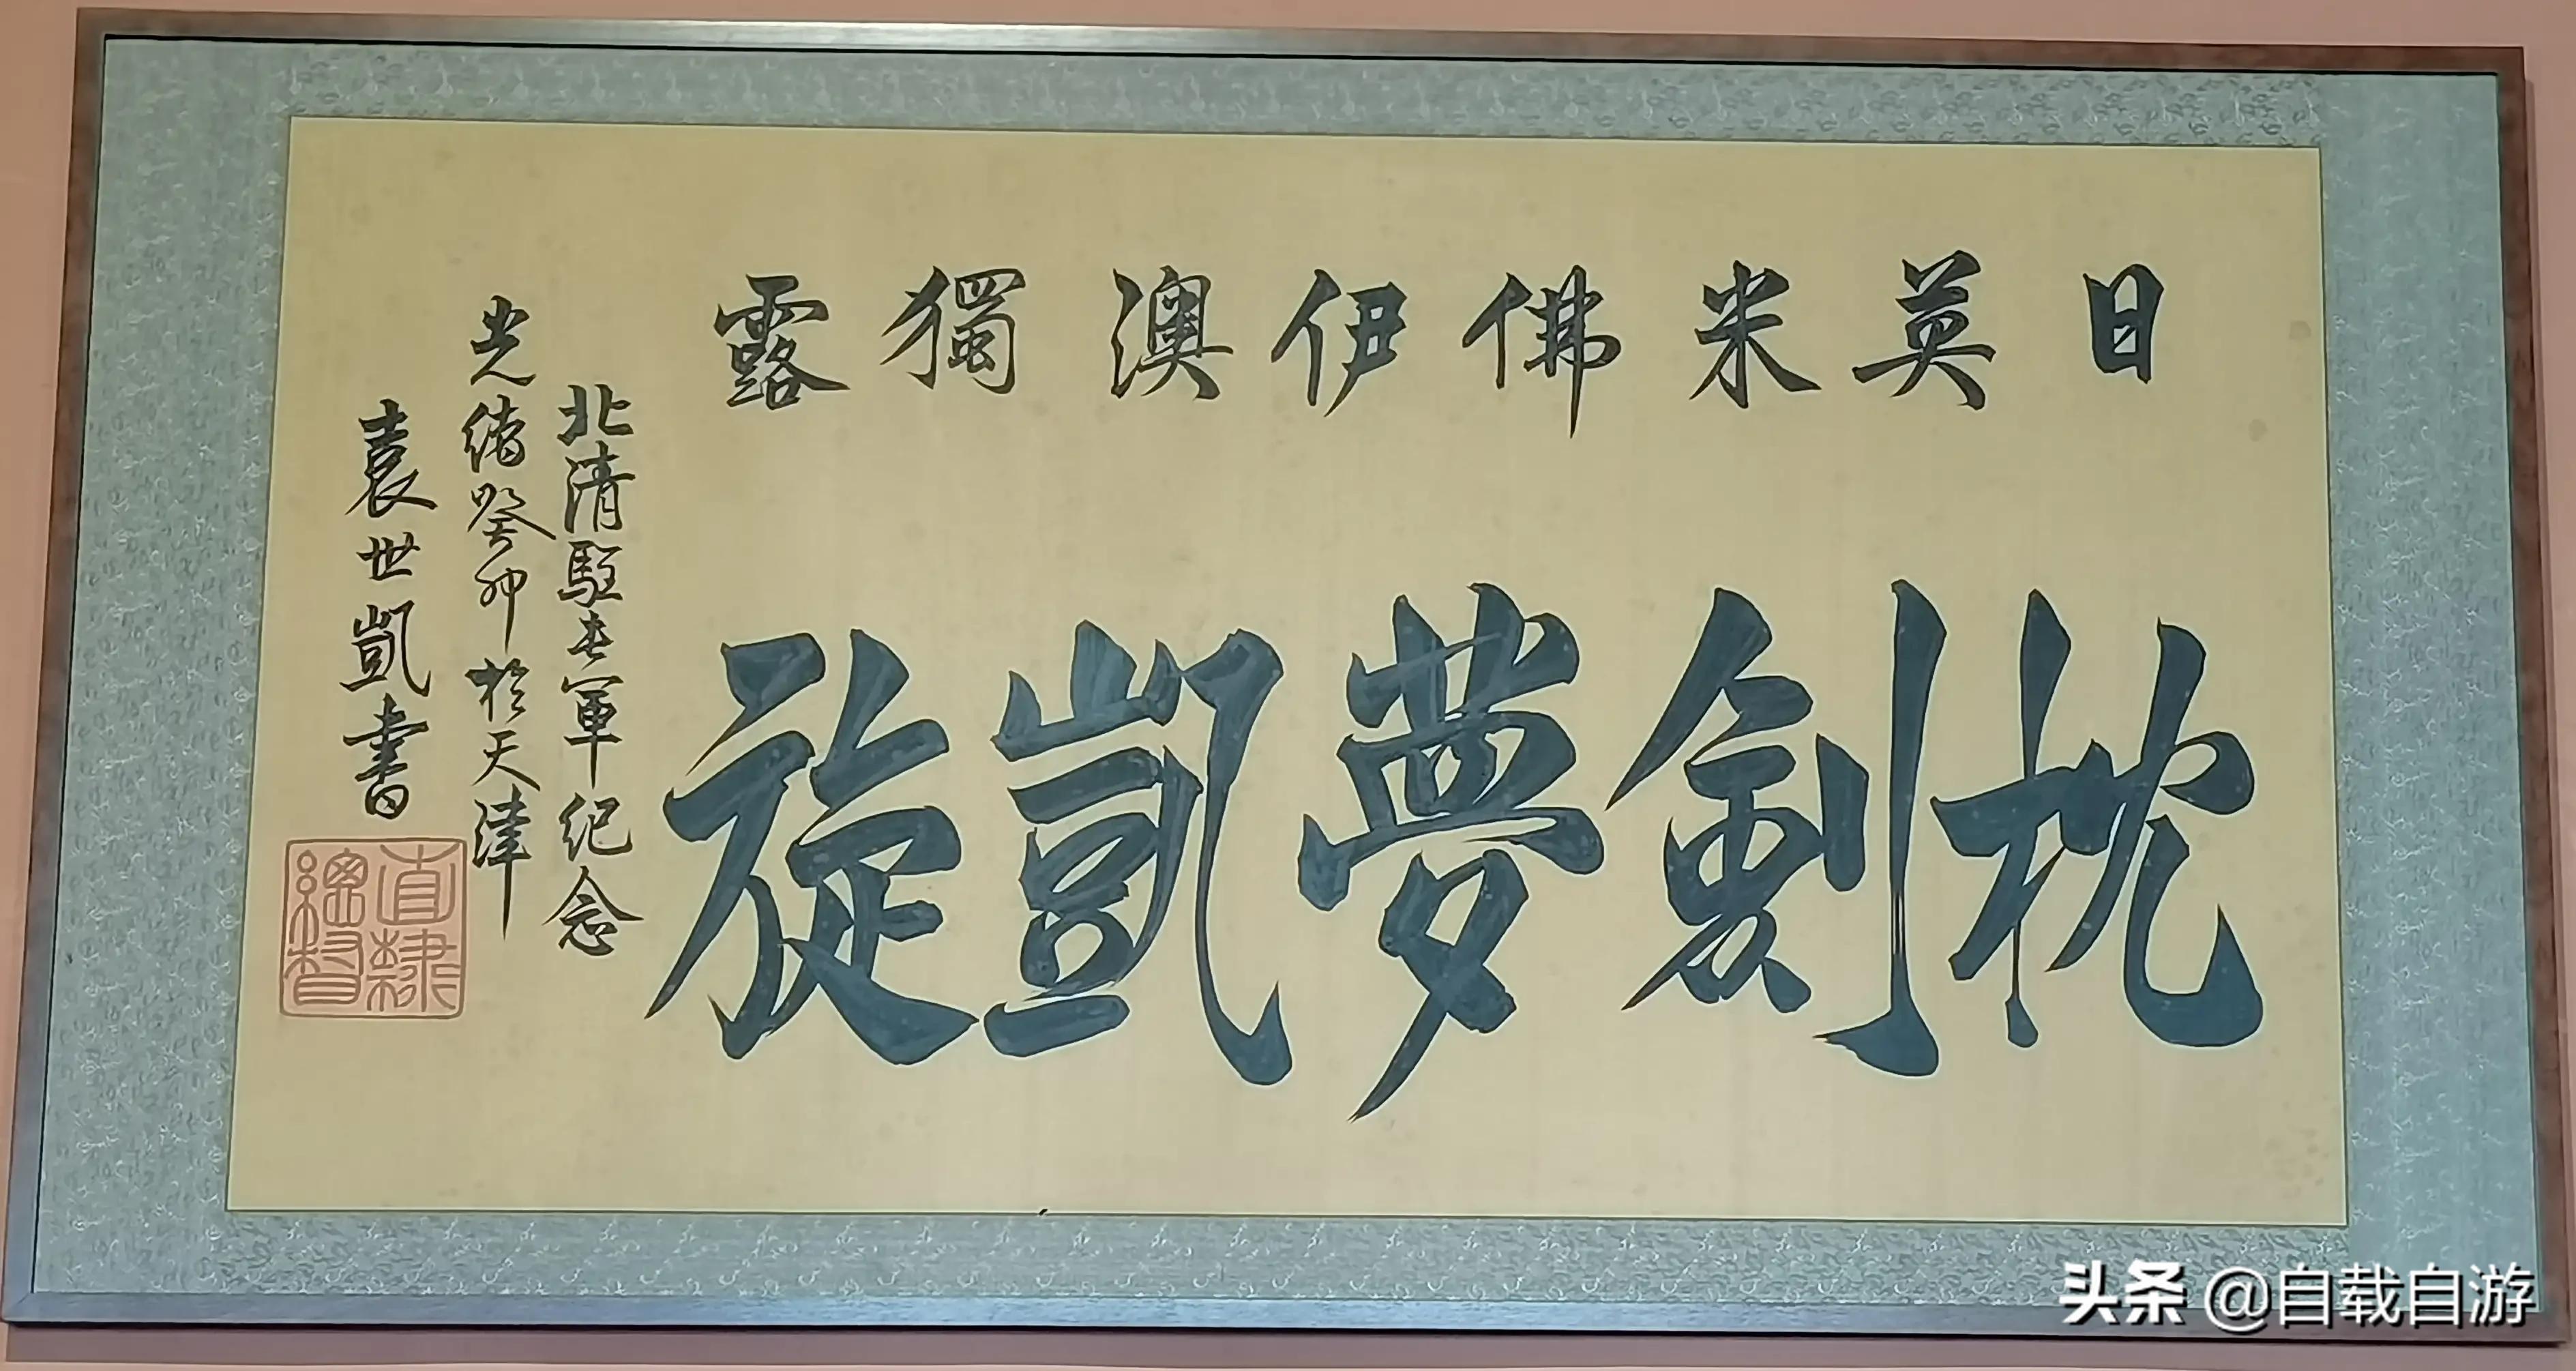 日英米佛伊澳獨露
枕劍夢凱旋
北清駐屯軍纪念
光緒癸卯於天津
袁世凱書
直隸
總督
头条 @自载自游